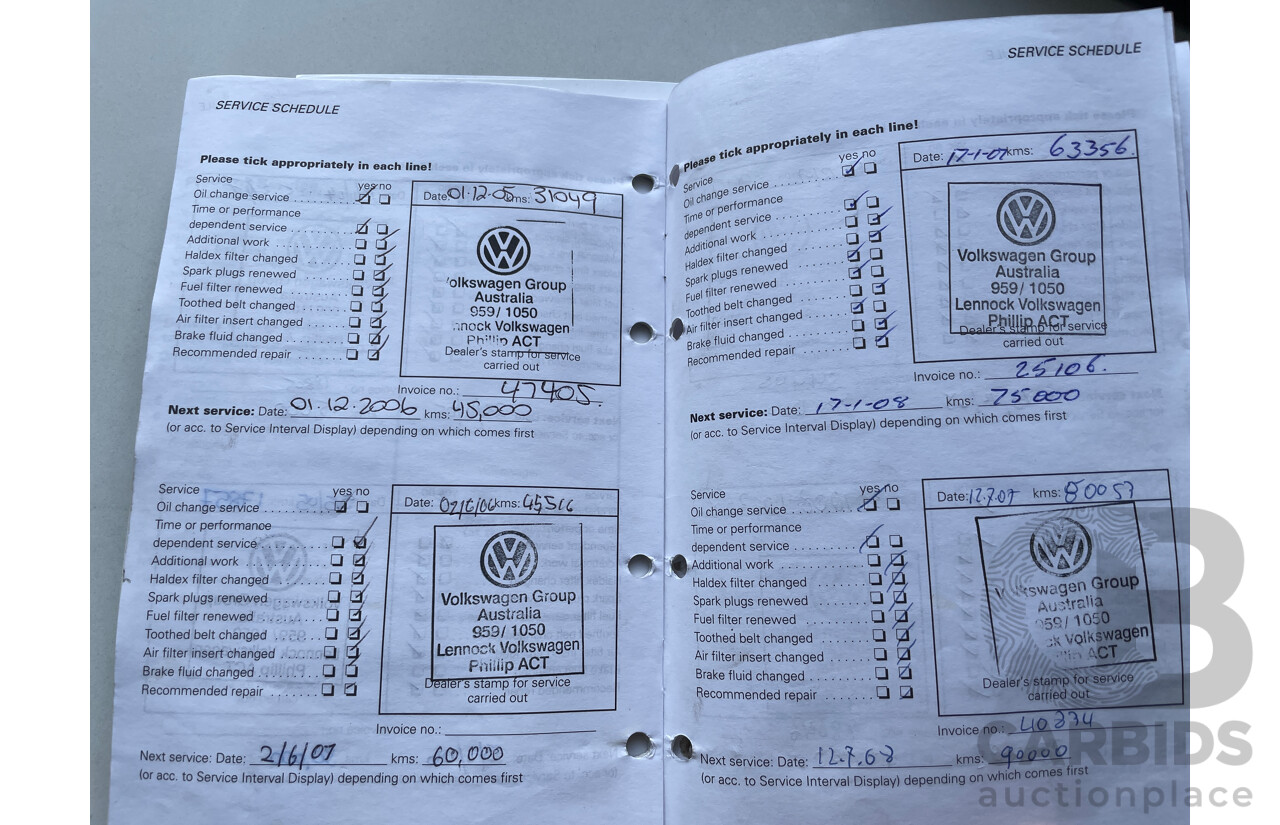 SERVICE SCHEDULE
Please tick appropriately in each line!
Service
yes no
Oil change service
Time or performance
dependent service
Additional work
Haldex filter changed
Spark plugs renewed
Fuel filter renewed
Toothed belt changed
Air filter insert changed
Brake fluid changed
Recommended repair
Date: 01.12.05 kms: 31049
olkswagen Group
Australia
959/ 1050
nnock Volkswagen
Phillip ACT
Dealer's stamp for service
carried out
Invoice no.: 47405.
Next service: Date: 01.12.2006 kms: 45,000
(or acc. to Service Interval Display) depending on which comes first
Service
yes no
Oil change service
Time or performance
dependent service
Additional work
Haldex filter changed
Spark plugs renewed
Fuel filter renewed
Toothed belt changed
Air filter insert changed
Brake fluid changed
Recommended repair
Date: 02/6/06 kms: 45516
Volkswagen Group
Australia
959/ 1050
Lennock Volkswagen
Phillip ACT
Dealer's stamp for service
carried out
Invoice no.:
Next service: Date: 2/6/07 kms: 60,000
(or acc. to Service Interval Display) depending on which comes first
SERVICE SCHEDULE
Please tick appropriately in each line!
Service
yes no
Oil change service
Time or performance
dependent service
Additional work
Haldex filter changed
Spark plugs renewed
Fuel filter renewed
Toothed belt changed
Air filter insert changed
Brake fluid changed
Recommended repair
Date: 17-1-07 kms: 63356.
Volkswagen Group
Australia
959/ 1050
Lennock Volkswagen
Phillip ACT
Dealer's stamp for service
carried out
Invoice no.: 25106.
Next service: Date: 17-1-08 kms: 75000
(or acc. to Service Interval Display) depending on which comes first
Service
yes no
Oil change service
Time or performance
dependent service
Additional work
Haldex filter changed
Spark plugs renewed
Fuel filter renewed
Toothed belt changed
Air filter insert changed
Brake fluid changed
Recommended repair
Date: 12.7.07 kms: 80057
kswagen Group
Australia
959/ 1050
ck Volkswagen
ACT
Dealer's stamp for service
carried out
Invoice no.: 40234
Next service: Date: 12.7.08 kms: 90000
(or acc. to Service Interval Display) depending on which comes first
CARBIDS
auctionplace